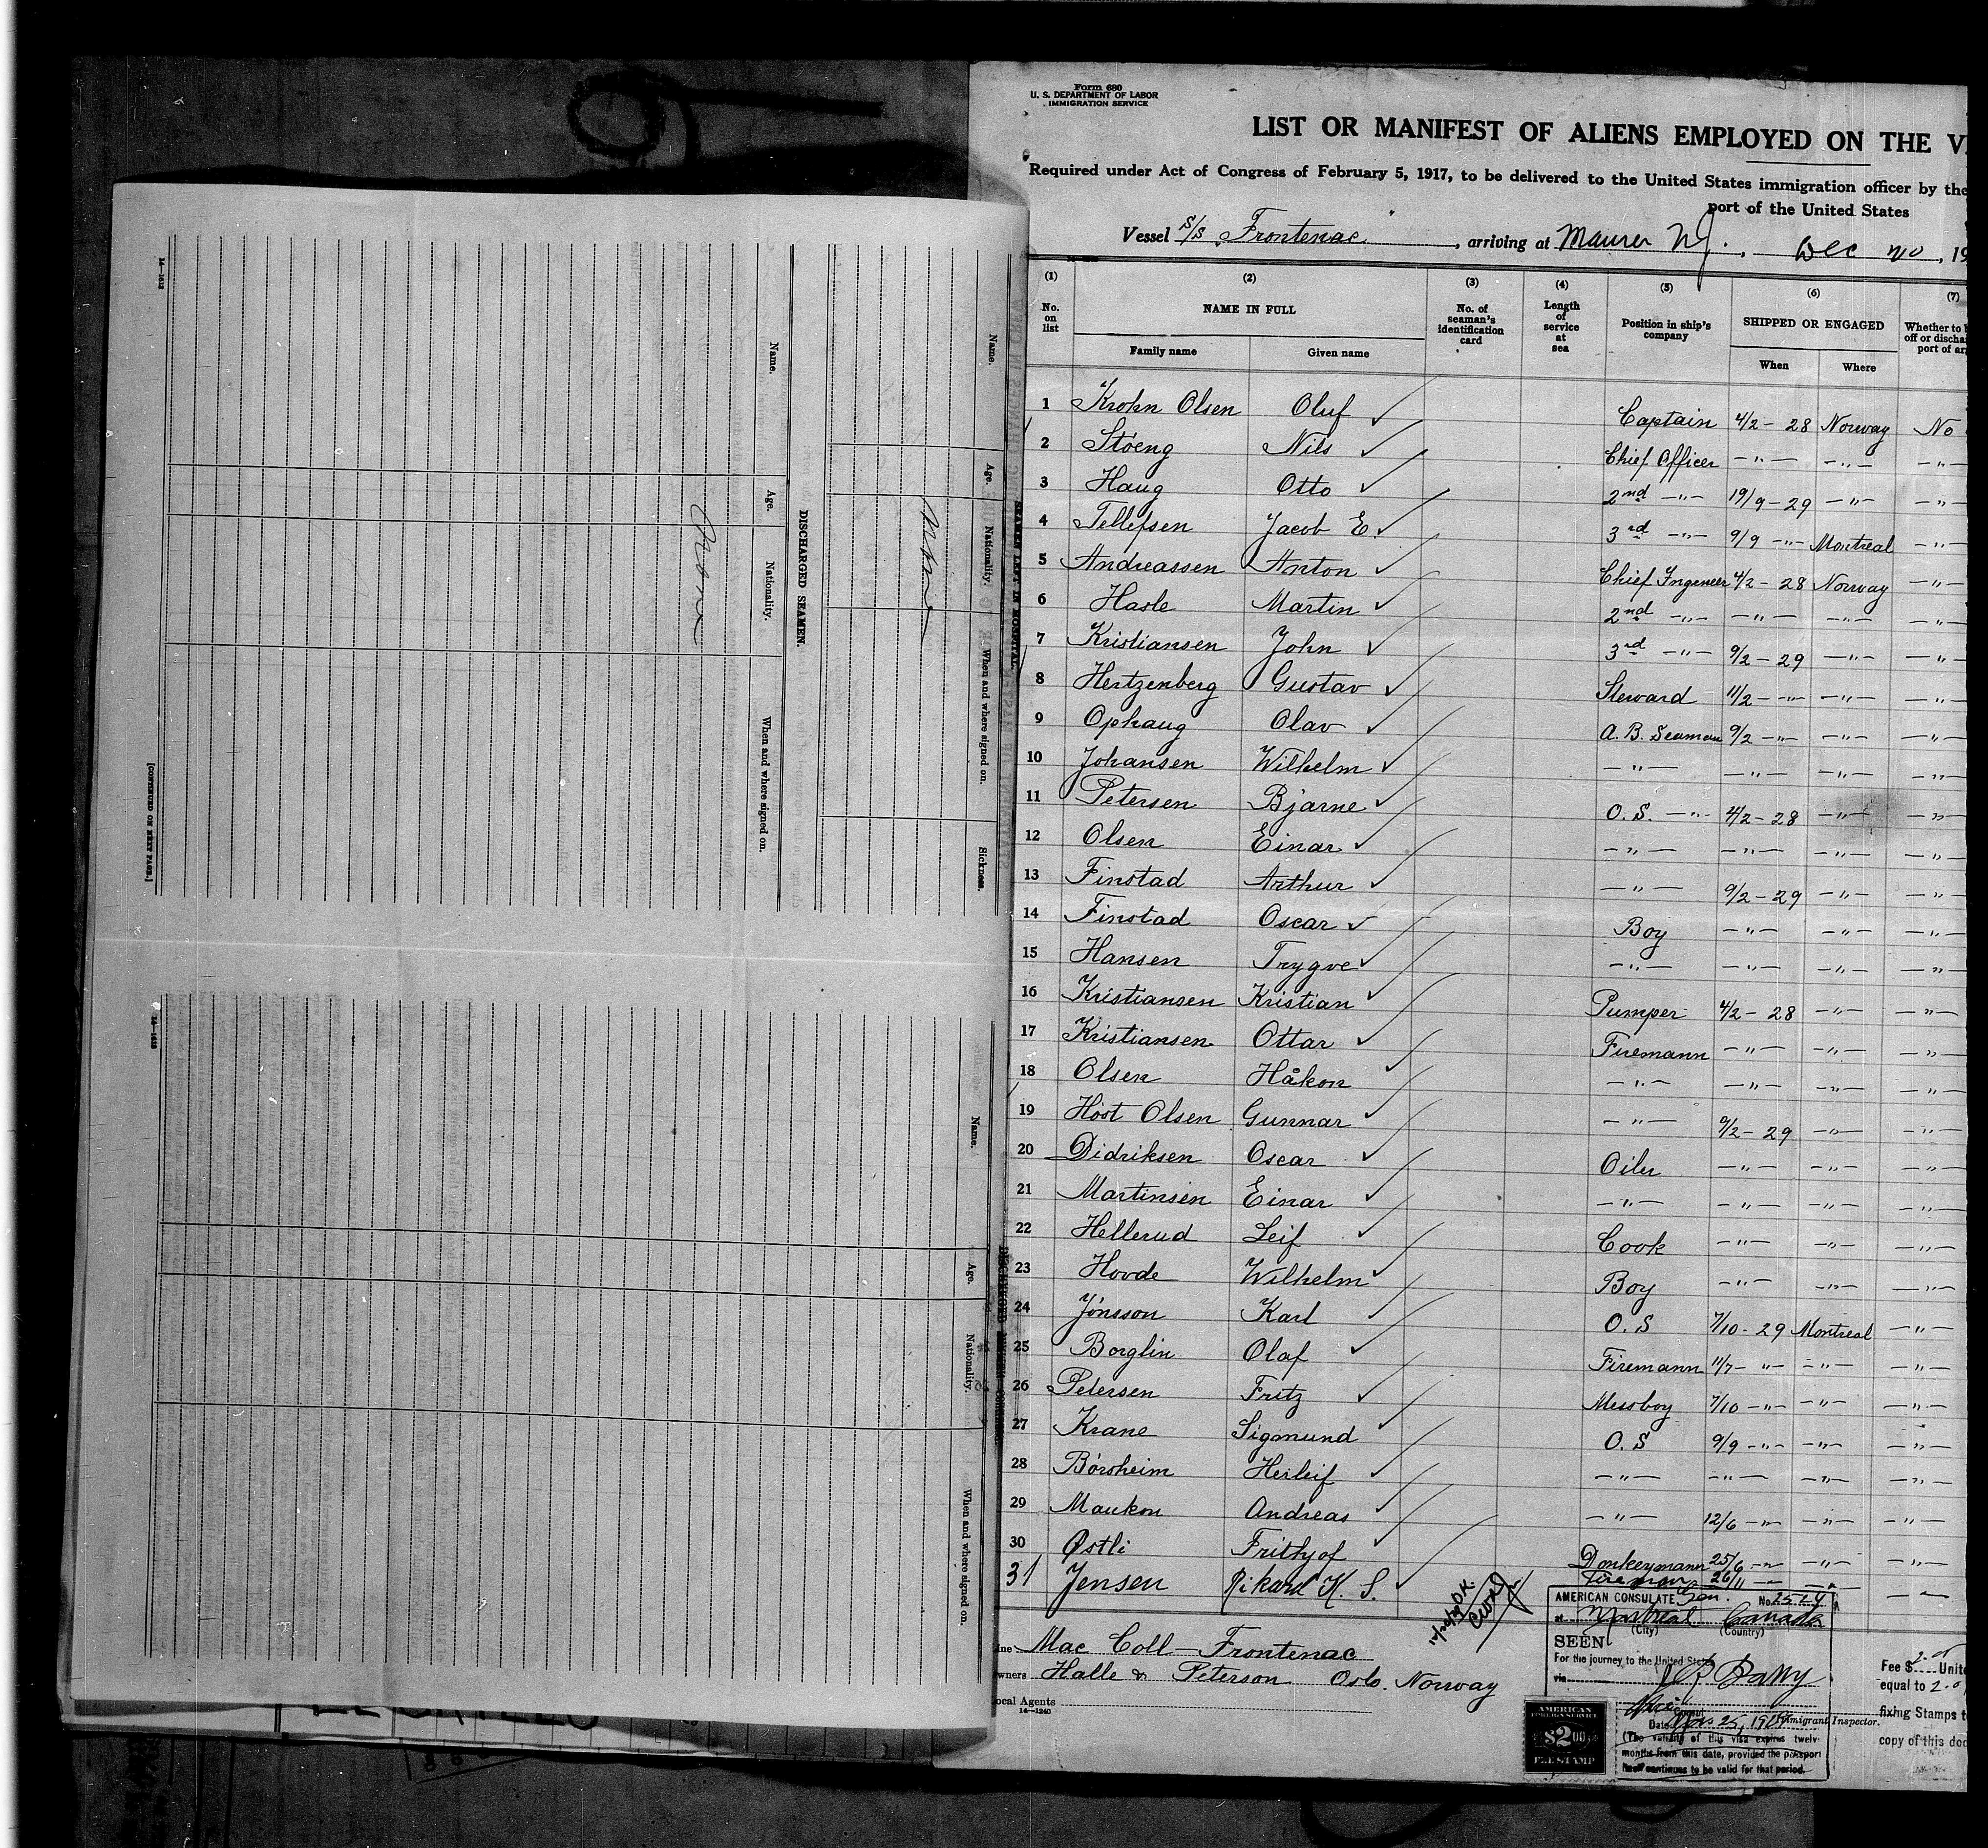 Form 680
U. S. DEPARTMENT OF LABOR
IMMIGRATION SERVICE
LIST OR MANIFEST OF ALIENS EMPLOYED ON THE
Required under Act of Congress of February 5, 1917, to be delivered to the United States immigration officer by the
port of the United States
Vessel S/S Frontenac, arriving at Maurer N.J. Dec , 19
(1) (2) (3) (4) (5) (6) (7)
No. on list NAME IN FULL No. of seaman's identification card Length of service at sea Position in ship's company SHIPPED OR ENGAGED Whether to
off or
port of
Family name Given name When Where
1 Krohn Olsen Oluf Captain 4/2 - 28 Norway No
2 Støeng Nils Chief Officer -"- -"- -"-
3 Haug Otto 2nd -"- 19/9 - 29 -"- -"-
4 Tellefsen Jacob E. 3rd -"- 9/9 -"- Montreal -"-
5 Andreassen Anton Chief Ingeneer 4/2 - 28 Norway -"-
6 Hasle Martin 2nd -"- -"- -"- -"-
7 Kristiansen John 3rd -"- 9/2 - 29 -"- -"-
8 Hertzenberg Gustav Steward 11/2 -"- -"- -"-
9 Ophaug Olav A. B. Seaman 9/2 -"- -"- -"-
10 Johansen Wilhelm -"- -"- -"- -"-
11 Petersen Bjarne O. S. -"- 4/2 - 28 -"- -"-
12 Olsen Einar -"- -"- -"- -"-
13 Finstad Arthur -"- 9/2 - 29 -"- -"-
14 Finstad Oscar Boy -"- -"- -"-
15 Hansen Trygve -"- -"- -"- -"-
16 Kristiansen Kristian Pumper 4/2 - 28 -"- -"-
17 Kristiansen Ottar Firemann -"- -"- -"-
18 Olsen Håkon -"- -"- -"- -"-
19 Höst Olsen Gunnar -"- 9/2 - 29 -"- -"-
20 Didriksen Oscar Oiler -"- -"- -"-
21 Martinsen Einar -"- -"- -"- -"-
22 Hellerud Leif Cook -"- -"- -"-
23 Hovde Wilhelm Boy -"- -"- -"-
24 Jónsson Karl O. S 7/10 - 29 Montreal -"-
25 Borglin Olaf Firemann 11/7 - "- -"- -"-
26 Petersen Fritz Messboy 7/10 -"- -"- -"-
27 Krane Sigmund O. S 9/9 -"- -"- -"-
28 Börsheim Herleif -"- -"- -"- -"-
29 Maukon Andreas -"- 12/6 -"- -"- -"-
30 Østli Frithjof Donkeymann 25/6 -"- -"- -"-
31 Jensen Rikard K. S. Fireman 26/11 -"- -"-
Mac Coll - Frontenac
Halle & Peterson Oslo. Norway
Local Agents
14—1240
AMERICAN CONSULATE Gen. No. 2524
at Montreal Canada
(City) (Country)
SEEN
For the journey to the United States
via
Vice Consul
Date Nov 25, 1929 Immigrant Inspector.
(The validity of this visa expires twelve
months from this date, provided the passport
itself continues to be valid for that period.)
AMERICAN
FOREIGN SERVICE
$2.00
FEE STAMP
Fee $
equal to 2.0
fixing Stamps
copy of this
SEAMEN LEFT IN HOSPITAL.
Name. Age. Nationality. When and where signed on. Sickness.
None
DISCHARGED SEAMEN.
Name. Age. Nationality. When and where signed on.
None
14—1613
[CONTINUED ON NEXT PAGE.]
Name. Age. Nationality. When and where signed on.
14—1613